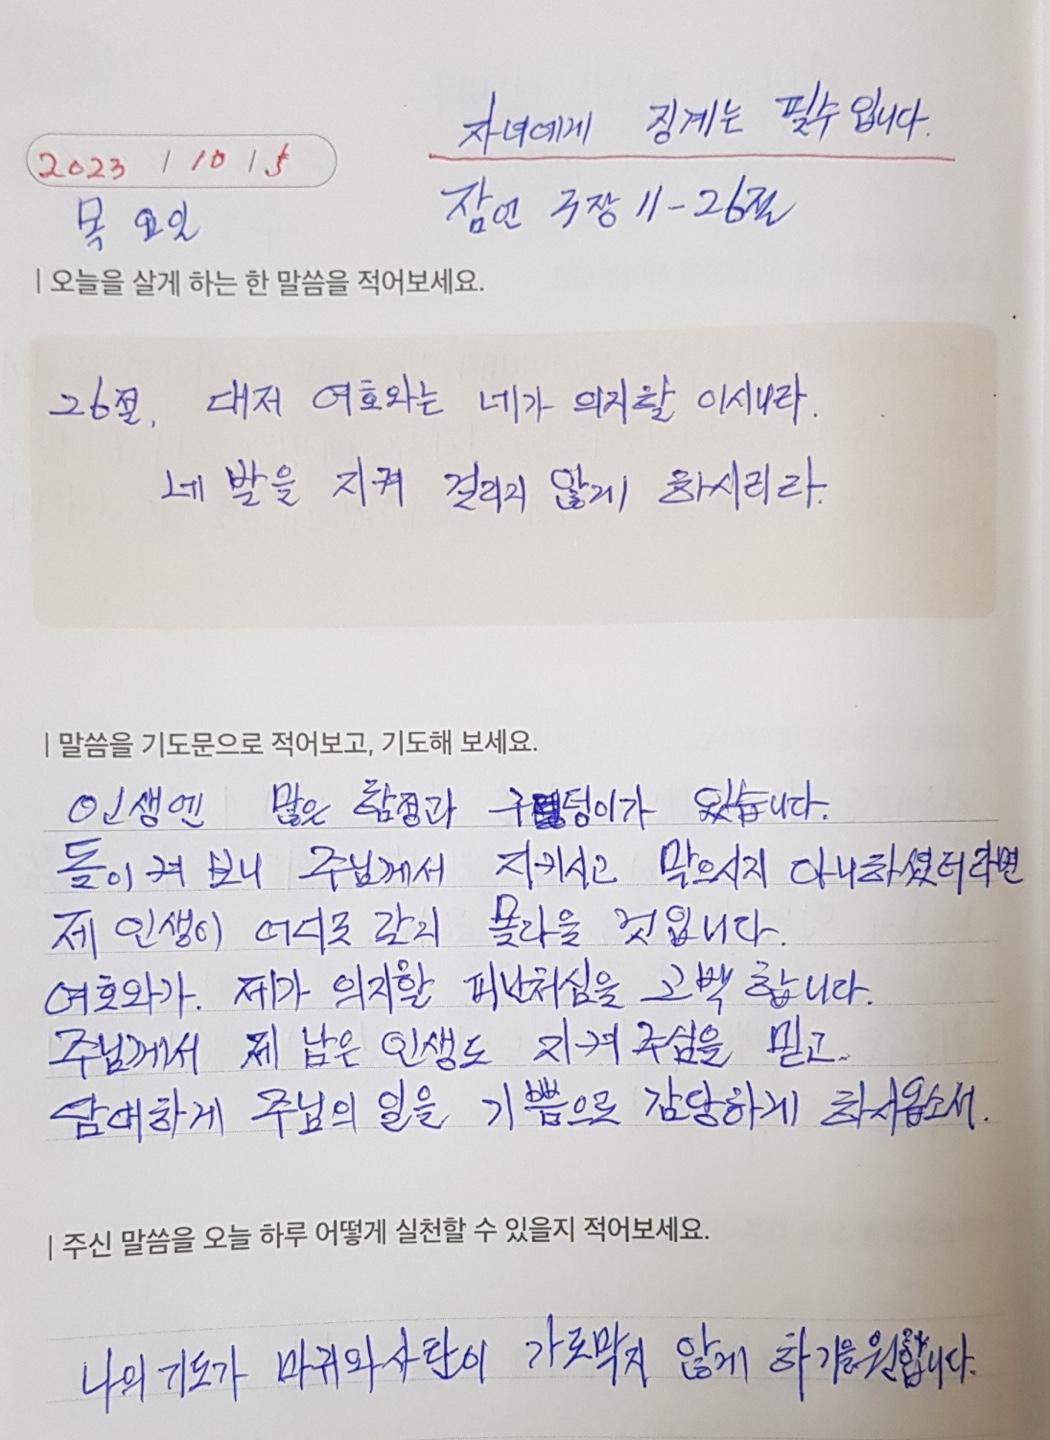 자녀에게 징계는 필수입니다.
2023 / 10 / 5
목요일
잠언 3장 11-26절
오늘을 살게 하는 한 말씀을 적어보세요.
26절, 대저 여호와는 네가 의지할 이시니라.
네 발을 지켜 걸리지 않게 하시리라.
말씀을 기도문으로 적어보고, 기도해 보세요.
인생엔 많은 함정과 구덩이가 있습니다.
돌이켜 보니 주님께서 지키시고 막으시지 아니하셨더라면
제 인생이 어디로 갈지 몰라을 것입니다.
여호와가. 제가 의지할 피난처심을 고백 합니다.
주님께서 제 남은 인생도 지켜 주심을 믿고.
담대하게 주님의 일을 기쁨으로 감당하게 하시옵소서.
주신 말씀을 오늘 하루 어떻게 실천할 수 있을지 적어보세요.
나의 기도가 마귀와 사탄이 가로막지 않게 하기를 원합니다.